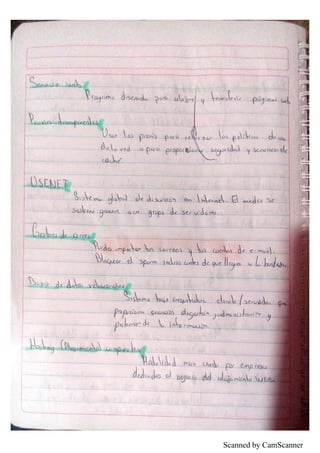 Servicio web
Programa diseñado para           y transferir páginas web
Proxies transparentes
Usar los proxis para reforzar las políticas de uso
de la red o para proporcionar seguridad y servicios de
caché.
USENET
Sistema global de discusión en Internet. El medio se
sostiene gracias a un grupo de servidores.
de correo
los correos y las cuentas de e-mail.
Bloquear el spam         antes de que llegue a      bandeja.
de datos relacionales
Sistema bajo arquitectura cliente/servidor que
proporciona servicios                                    y
de la información.
Hosting (Alojamiento) 
Modalidad más usada por empresas
dedicadas al negocio del alojamiento
Scanned by CamScanner